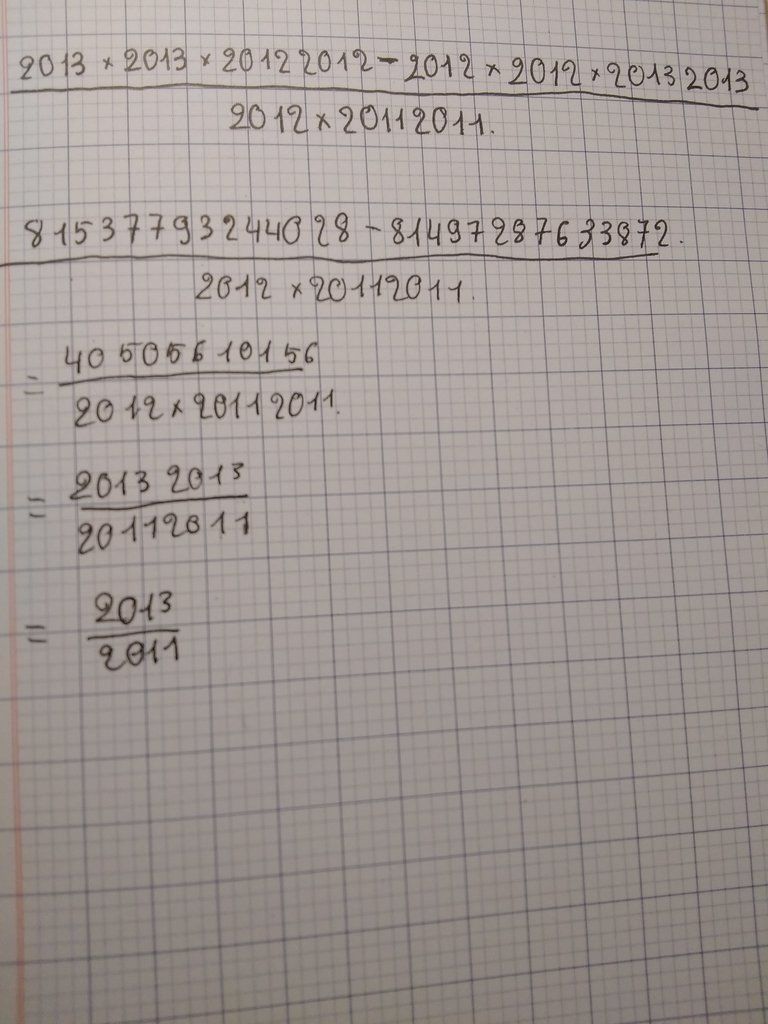 2013 × 2013 × 20122012 - 2012 × 2012 × 20132013
2012 × 20112011.
81537793244028 - 81497287633872.
2012 × 20112011.
= 40505610156
2012 × 20112011.
= 20132013
20112011
= 2013
2011